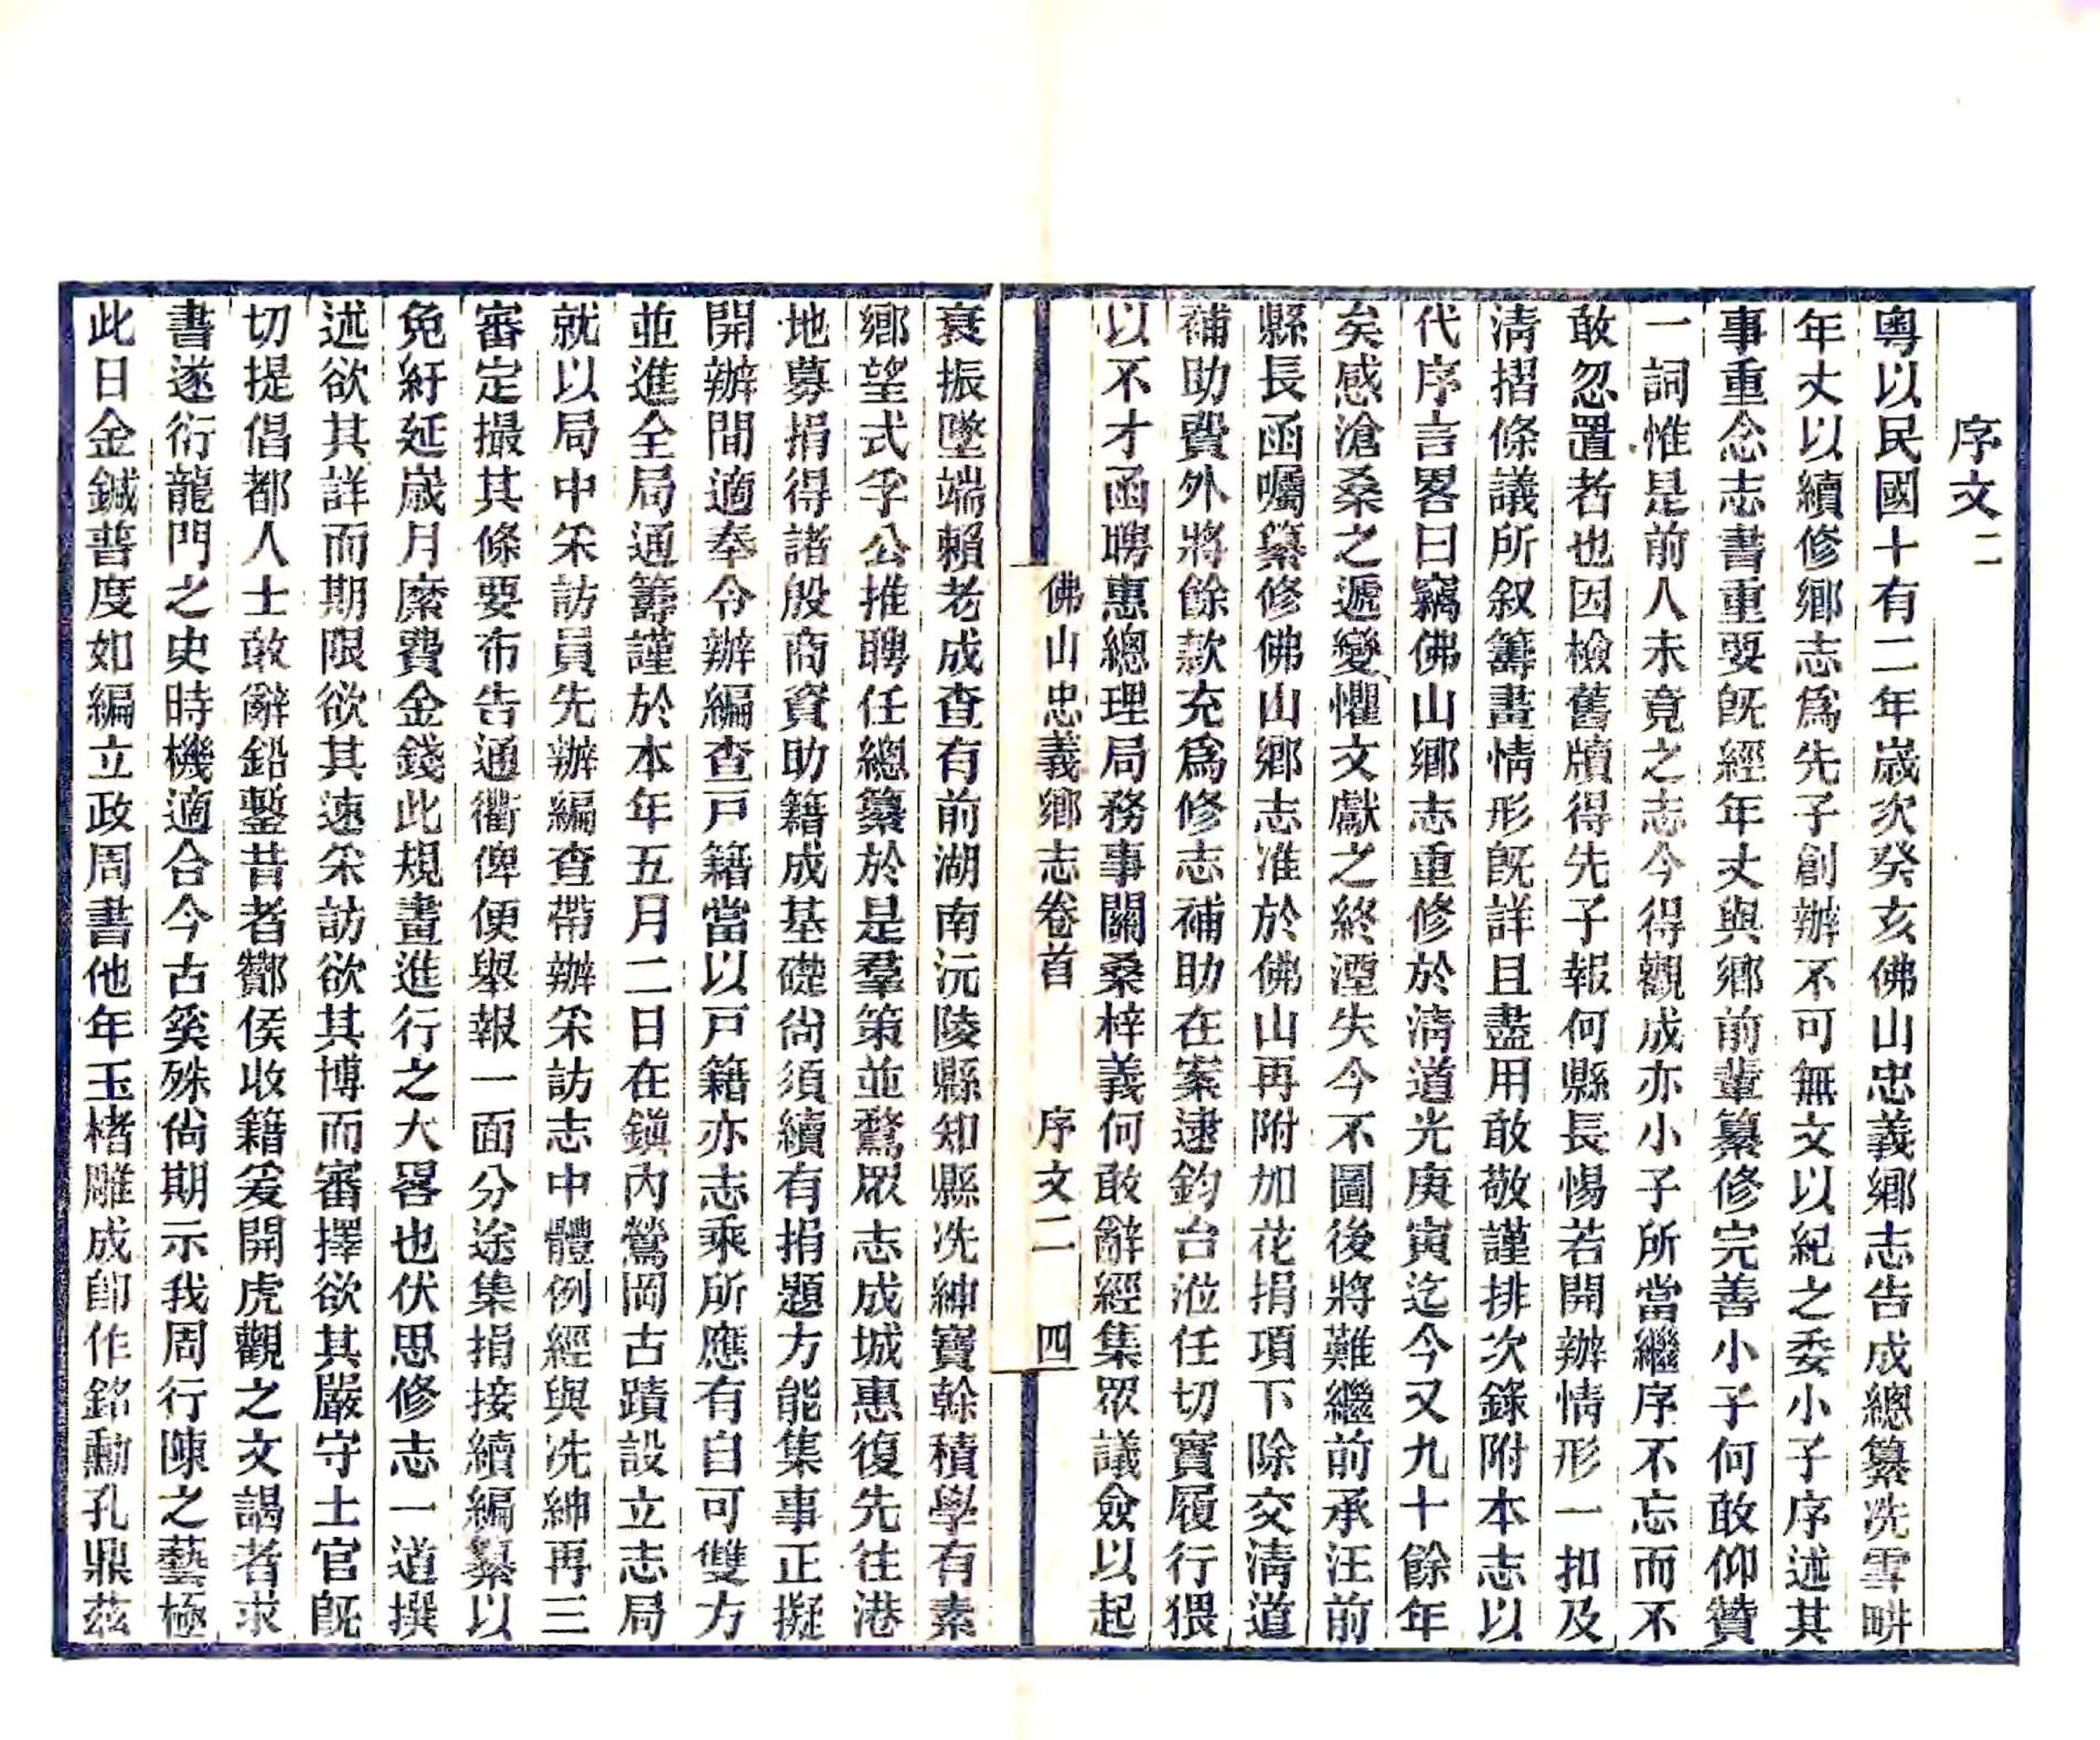 序文二
粵以民國十有二年歲次癸亥佛山忠義鄉志告成總纂冼雪畊
年丈以續修鄉志爲先子創辦不可無文以紀之委小子序述其
事重念志書重要旣經年丈與鄉前輩纂修完善小子何敢仰贊
一詞惟是前人未竟之志今得觀成亦小子所當繼序不忘而不
敢忽置者也因檢舊牘得先子報何縣長惕若開辦情形一扣及
清摺條議所叙籌畫情形旣詳且盡用敢敬謹排次錄附本志以
代序言畧曰竊佛山鄉志重修於清道光庚寅迄今又九十餘年
矣感滄桑之遞變懼文獻之終湮失今不圖後將難繼前承汪前
縣長函囑纂修佛山鄉志准於佛山再附加花捐項下除交清道
補助費外將餘款充爲修志補助在案逮鈞台涖任切實履行猥
以不才函聘惠總理局務事關桑梓義何敢辭經集眾議僉以起
佛山忠義鄉志卷首　序文二　四
衰振墜端賴老成查有前湖南沅陵縣知縣冼紳寶榦積學有素
鄉望式孚公推聘任總纂於是羣策並鶩眾志成城惠復先往港
地募捐得諸殷商資助籍成基礎尙須續有捐題方能集事正擬
開辦間適奉令辦編查戶籍當以戶籍亦志乘所應有自可雙方
並進全局通籌謹於本年五月二日在鎭內鶯岡古蹟設立志局
就以局中采訪員先辦編查帶辦采訪志中體例經與冼紳再三
審定撮其條要布告通衢俾便舉報一面分途集捐接續編纂以
免紆延歲月糜費金錢此規畫進行之大畧也伏思修志一道撰
述欲其詳而期限欲其速采訪欲其博而審擇欲其嚴守土官旣
切提倡都人士敢辭鉛墼昔者酇侯收籍爰開虎觀之文謁者求
書遂衍龍門之史時機適合今古奚殊尙期示我周行陳之藝極
此日金鍼普度如編立政周書他年玉楮雕成卽作銘勳孔鼎茲